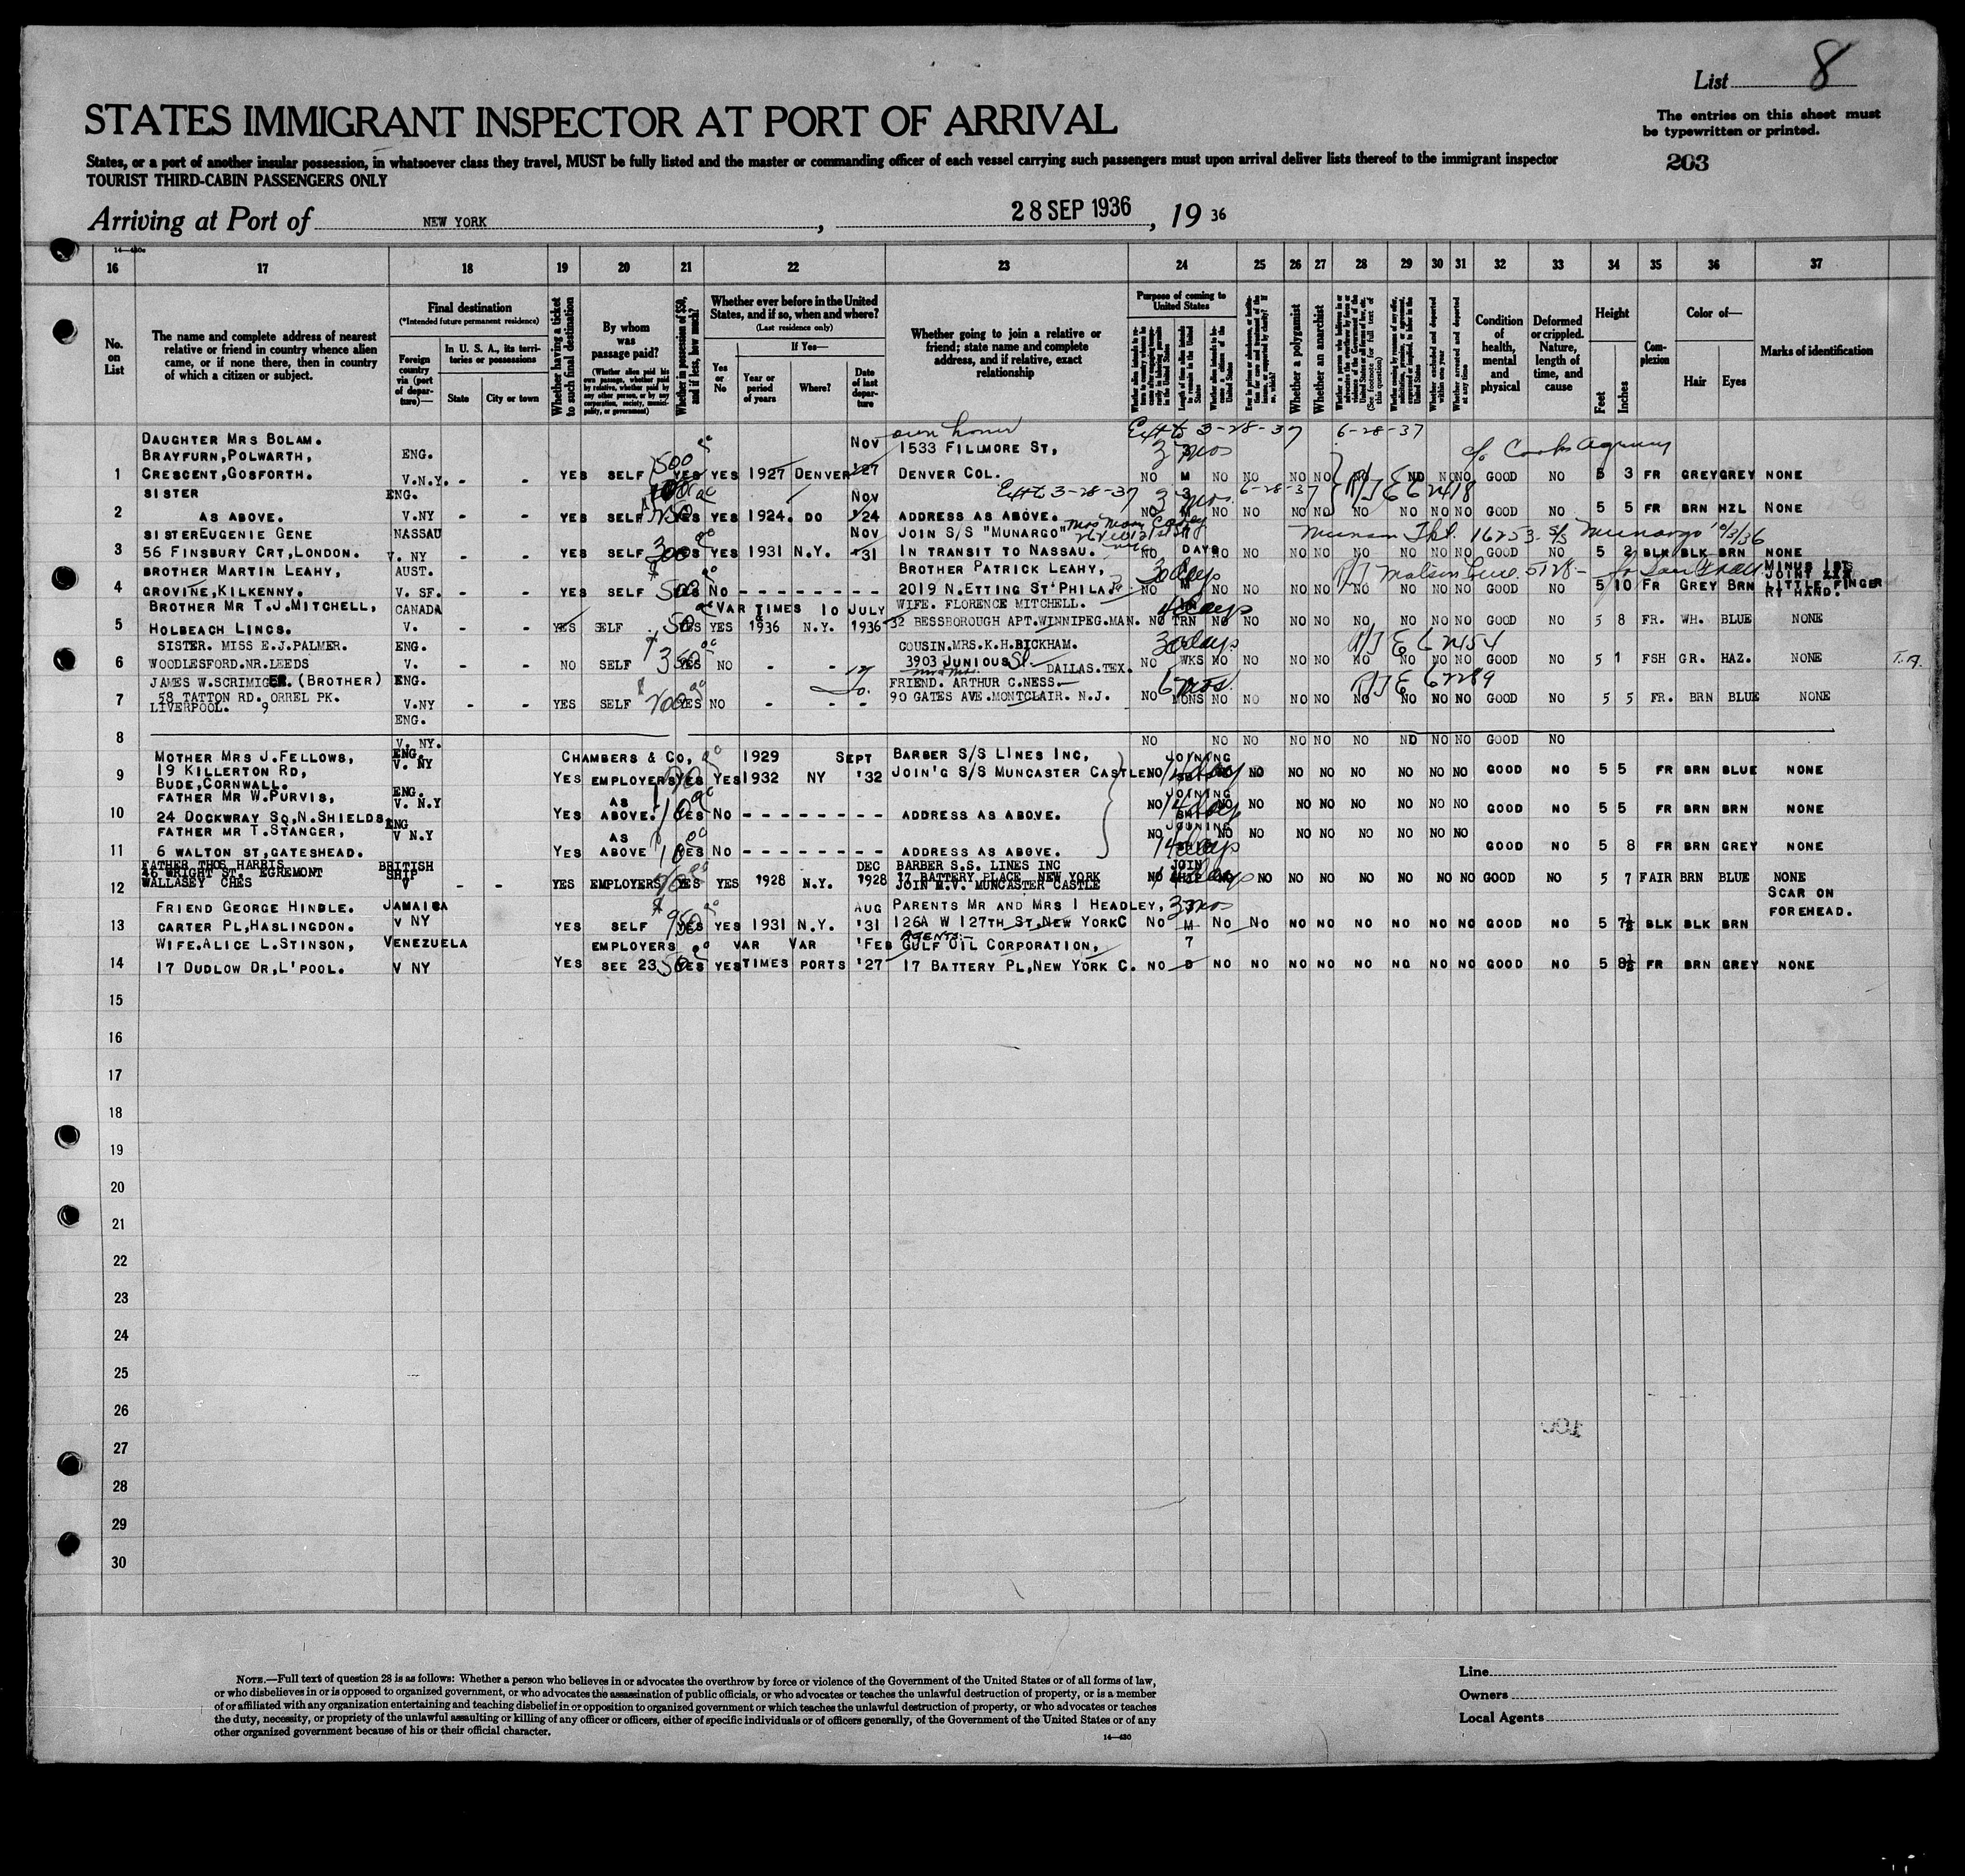 List 8
STATES IMMIGRANT INSPECTOR AT PORT OF ARRIVAL
The entries on this sheet must
be typewritten or printed.
States, or a port of another insular possession, in whatsoever class they travel, MUST be fully listed and the master or commanding officer of each vessel carrying such passengers must upon arrival deliver lists thereof to the immigrant inspector
TOURIST THIRD-CABIN PASSENGERS ONLY
203
Arriving at Port of NEW YORK, 28 SEP 1936, 19 36
16 17 18 19 20 21 22 23 24 25 26 27 28 29 30 31 32 33 34 35 36 37
No. on List
The name and complete address of nearest relative or friend in country whence alien came, or if none there, then in country of which a citizen or subject.
Final destination
(*Intended future permanent residence)
Foreign country via (port of departure)—
In U. S. A., its territories or possessions
State
City or town
Whether having a ticket to such final destination
By whom was passage paid?
(Whether alien paid his own passage, whether paid by relative, whether paid by any other person, or by any corporation, society, municipality, or government)
Whether in possession of $50, and if less, how much?
Whether ever before in the United States, and if so, when and where?
(Last residence only)
Yes or No
If Yes—
Year or period of years
Where?
Date of last departure
Whether going to join a relative or friend; state name and complete address, and if relative, exact relationship
Purpose of coming to United States
Whether a polygamist
Whether an anarchist
Condition of health, mental and physical
Deformed or crippled. Nature, length of time, and cause
Height
Feet
Inches
Complexion
Color of—
Hair
Eyes
Marks of identification
DAUGHTER MRS BOLAM. NOV own home Ext to 3-28-37 6-28-37
BRAYFURN, POLWARTH, ENG. 1533 FILLMORE ST, 3 mos c/o Cooks Agency
1 CRESCENT, GOSFORTH. V.N.Y. - - YES SELF 500 YES YES 1927 DENVER '27 DENVER COL. NO M NO NO NO NO NO NO NO NO GOOD NO 5 3 FR GREY GREY NONE
SISTER ENG. NOV Ext 3-28-37 3 mos 6-28-37
2 AS ABOVE. V.NY - - YES SELF YES YES 1924. DO '24 ADDRESS AS ABOVE. NO M NO NO NO NO NO NO NO NO GOOD NO 5 5 FR BRN HZL NONE
SISTER EUGENIE GENE NASSAU NOV JOIN S/S "MUNARGO"
3 56 FINSBURY CRT, LONDON. V. NY - - YES SELF 300 YES YES 1931 N.Y. '31 IN TRANSIT TO NASSAU. NO DAYS NO NO NO NO NO NO NO NO GOOD NO 5 2 BLK BLK BRN NONE
BROTHER MARTIN LEAHY, AUST. BROTHER PATRICK LEAHY, 30 days MINUS 1ST JOINT
4 GROVINE, KILKENNY. V. SF. - - YES SELF 500 YES NO - - - - - - - 2019 N. ETTING ST PHILA. NO M NO NO NO NO NO NO NO NO GOOD NO 5 10 FR GREY BRN LITTLE FINGER RT HAND.
BROTHER MR T.J. MITCHELL, CANADA VAR TIMES 10 JULY WIFE. FLORENCE MITCHELL. days
5 HOLBEACH LINCS. V. YES SELF 50 YES YES 1936 N.Y. 1936 32 BESSBOROUGH APT. WINNIPEG. MAN. NO TRN NO NO NO NO NO NO NO NO GOOD NO 5 8 FR. WH. BLUE NONE
SISTER. MISS E.J. PALMER. ENG. COUSIN. MRS. K.H. BICKHAM. 30 days
6 WOODLESFORD. NR. LEEDS V. NO SELF 350 YES NO - - 3903 JUNIOUS St. DALLAS. TEX. NO WKS NO NO NO NO NO NO NO NO GOOD NO 5 1 FSH GR. HAZ. NONE T.A.
JAMES W. SCRIMIGER. (BROTHER) ENG. FRIEND. ARTHUR C. NESS. 6 mos.
7 58 TATTON RD. ORREL PK. LIVERPOOL. 9 V.NY - - YES SELF 200 YES NO - - - 90 GATES AVE. MONTCLAIR. N.J. NO MONS NO NO NO NO NO NO NO NO GOOD NO 5 5 FR. BRN BLUE NONE
ENG.
8 V. NY. NO NO NO NO NO NO NO NO NO GOOD NO
MOTHER MRS J. FELLOWS, ENG. CHAMBERS & CO, 1929 SEPT BARBER S/S LINES INC, JOINING
9 19 KILLERTON RD, BUDE, CORNWALL. V. NY YES EMPLOYERS YES YES 1932 NY '32 JOIN'G S/S MUNCASTER CASTLE NO NO NO NO NO NO NO NO GOOD NO 5 5 FR BRN BLUE NONE
FATHER MR W. PURVIS, ENG. V. N.Y AS JOINING
10 24 DOCKWRAY SQ, N. SHIELDS. YES ABOVE. 10 YES NO - - - - - - - - ADDRESS AS ABOVE. NO 14 days NO NO NO NO NO NO NO NO GOOD NO 5 5 FR BRN BRN NONE
FATHER MR T. STANGER, ENG V N.Y AS JOINING
11 6 WALTON ST, GATESHEAD. YES ABOVE 10 YES NO - - - - - - - - ADDRESS AS ABOVE. NO 14 days NO NO NO NO NO NO NO NO GOOD NO 5 8 FR BRN GREY NONE
FATHER THOS HARRIS BRITISH DEC BARBER S.S. LINES INC JOIN
46 WRIGHT ST. EGREMONT SHIP 17 BATTERY PLACE NEW YORK
12 WALLASEY CHES V - - YES EMPLOYERS YES YES 1928 N.Y. 1928 JOIN M.V. MUNCASTER CASTLE NO SHIP NO NO NO NO NO NO NO NO GOOD NO 5 7 FAIR BRN BLUE NONE
FRIEND GEORGE HINDLE. JAMAICA AUG PARENTS MR AND MRS I HEADLEY, 3 mos SCAR ON FOREHEAD.
13 CARTER PL, HASLINGDON. V NY YES SELF 950 YES YES 1931 N.Y. '31 126A W 127TH ST, NEW YORK C NO M NO NO NO NO NO NO NO NO GOOD NO 5 7½ BLK BLK BRN
WIFE. ALICE L. STINSON, VENEZUELA EMPLOYERS VAR VAR 'FEB AGENTS:- GULF OIL CORPORATION, 7
14 17 DUDLOW DR, L'POOL. V NY YES SEE 23 50 YES YES TIMES PORTS '27 17 BATTERY PL, NEW YORK C. NO D NO NO NO NO NO NO NO NO GOOD NO 5 8½ FR BRN GREY NONE
15
16
17
18
19
20
21
22
23
24
25
26
27
28
29
30
NOTE.—Full text of question 28 is as follows: Whether a person who believes in or advocates the overthrow by force or violence of the Government of the United States or of all forms of law,
or who disbelieves in or is opposed to organized government, or who advocates the assassination of public officials, or who advocates or teaches the unlawful destruction of property, or is a member
of or affiliated with any organization entertaining and teaching disbelief in or opposition to organized government or which teaches the unlawful destruction of property, or who advocates or teaches
the duty, necessity, or propriety of the unlawful assaulting or killing of any officer or officers, either of specific individuals or of officers generally, of the Government of the United States or of any
other organized government because of his or their official character.
14—430
Line
Owners
Local Agents